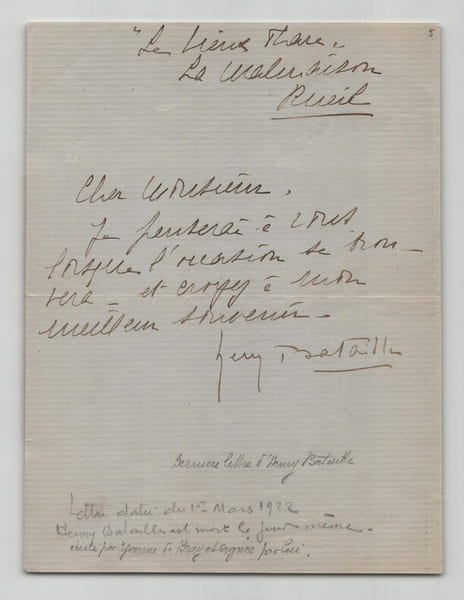 "Le Vieux Phare"
La Malmaison
Rueil
5
Cher Monsieur,
Je penserai à vous
lorsque l'occasion se trou-
vera – et croyez à mon
meilleur souvenir –
Henry Bataille
Dernière lettre d'Henry Bataille
Lettre datée du 1er Mars 1922
Henry Bataille est mort le jour même.
écrite par Yvonne de Bray et signée par lui.